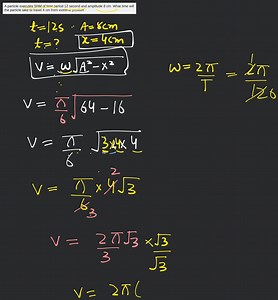 A particle executes SHM of time period 12 second and amplitude 8 cm. What time will
the particle take to travel 4 cm from extreme position?
t=12s - A=8cm
t=? x=4cm
V = ω√A²-x²
V = π/6 √64-16
V = π/6 √3×4×4
V = π/6 3 × 4 2 √3
V = 2π√3/3 × √3/√3
V = 2π(
ω = 2π/T = 2π 1/12 6